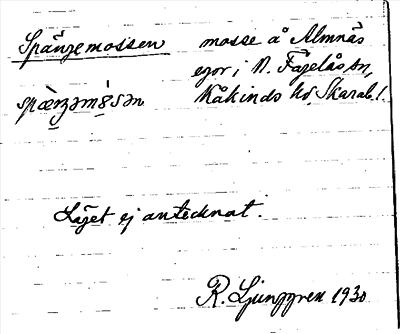 Spångemossen mosse å Almnäs
egor i N. Fågelås sn,
Kåkinds hd, Skarab.l.
Läget ej antecknat.
R. Ljunggren 1930